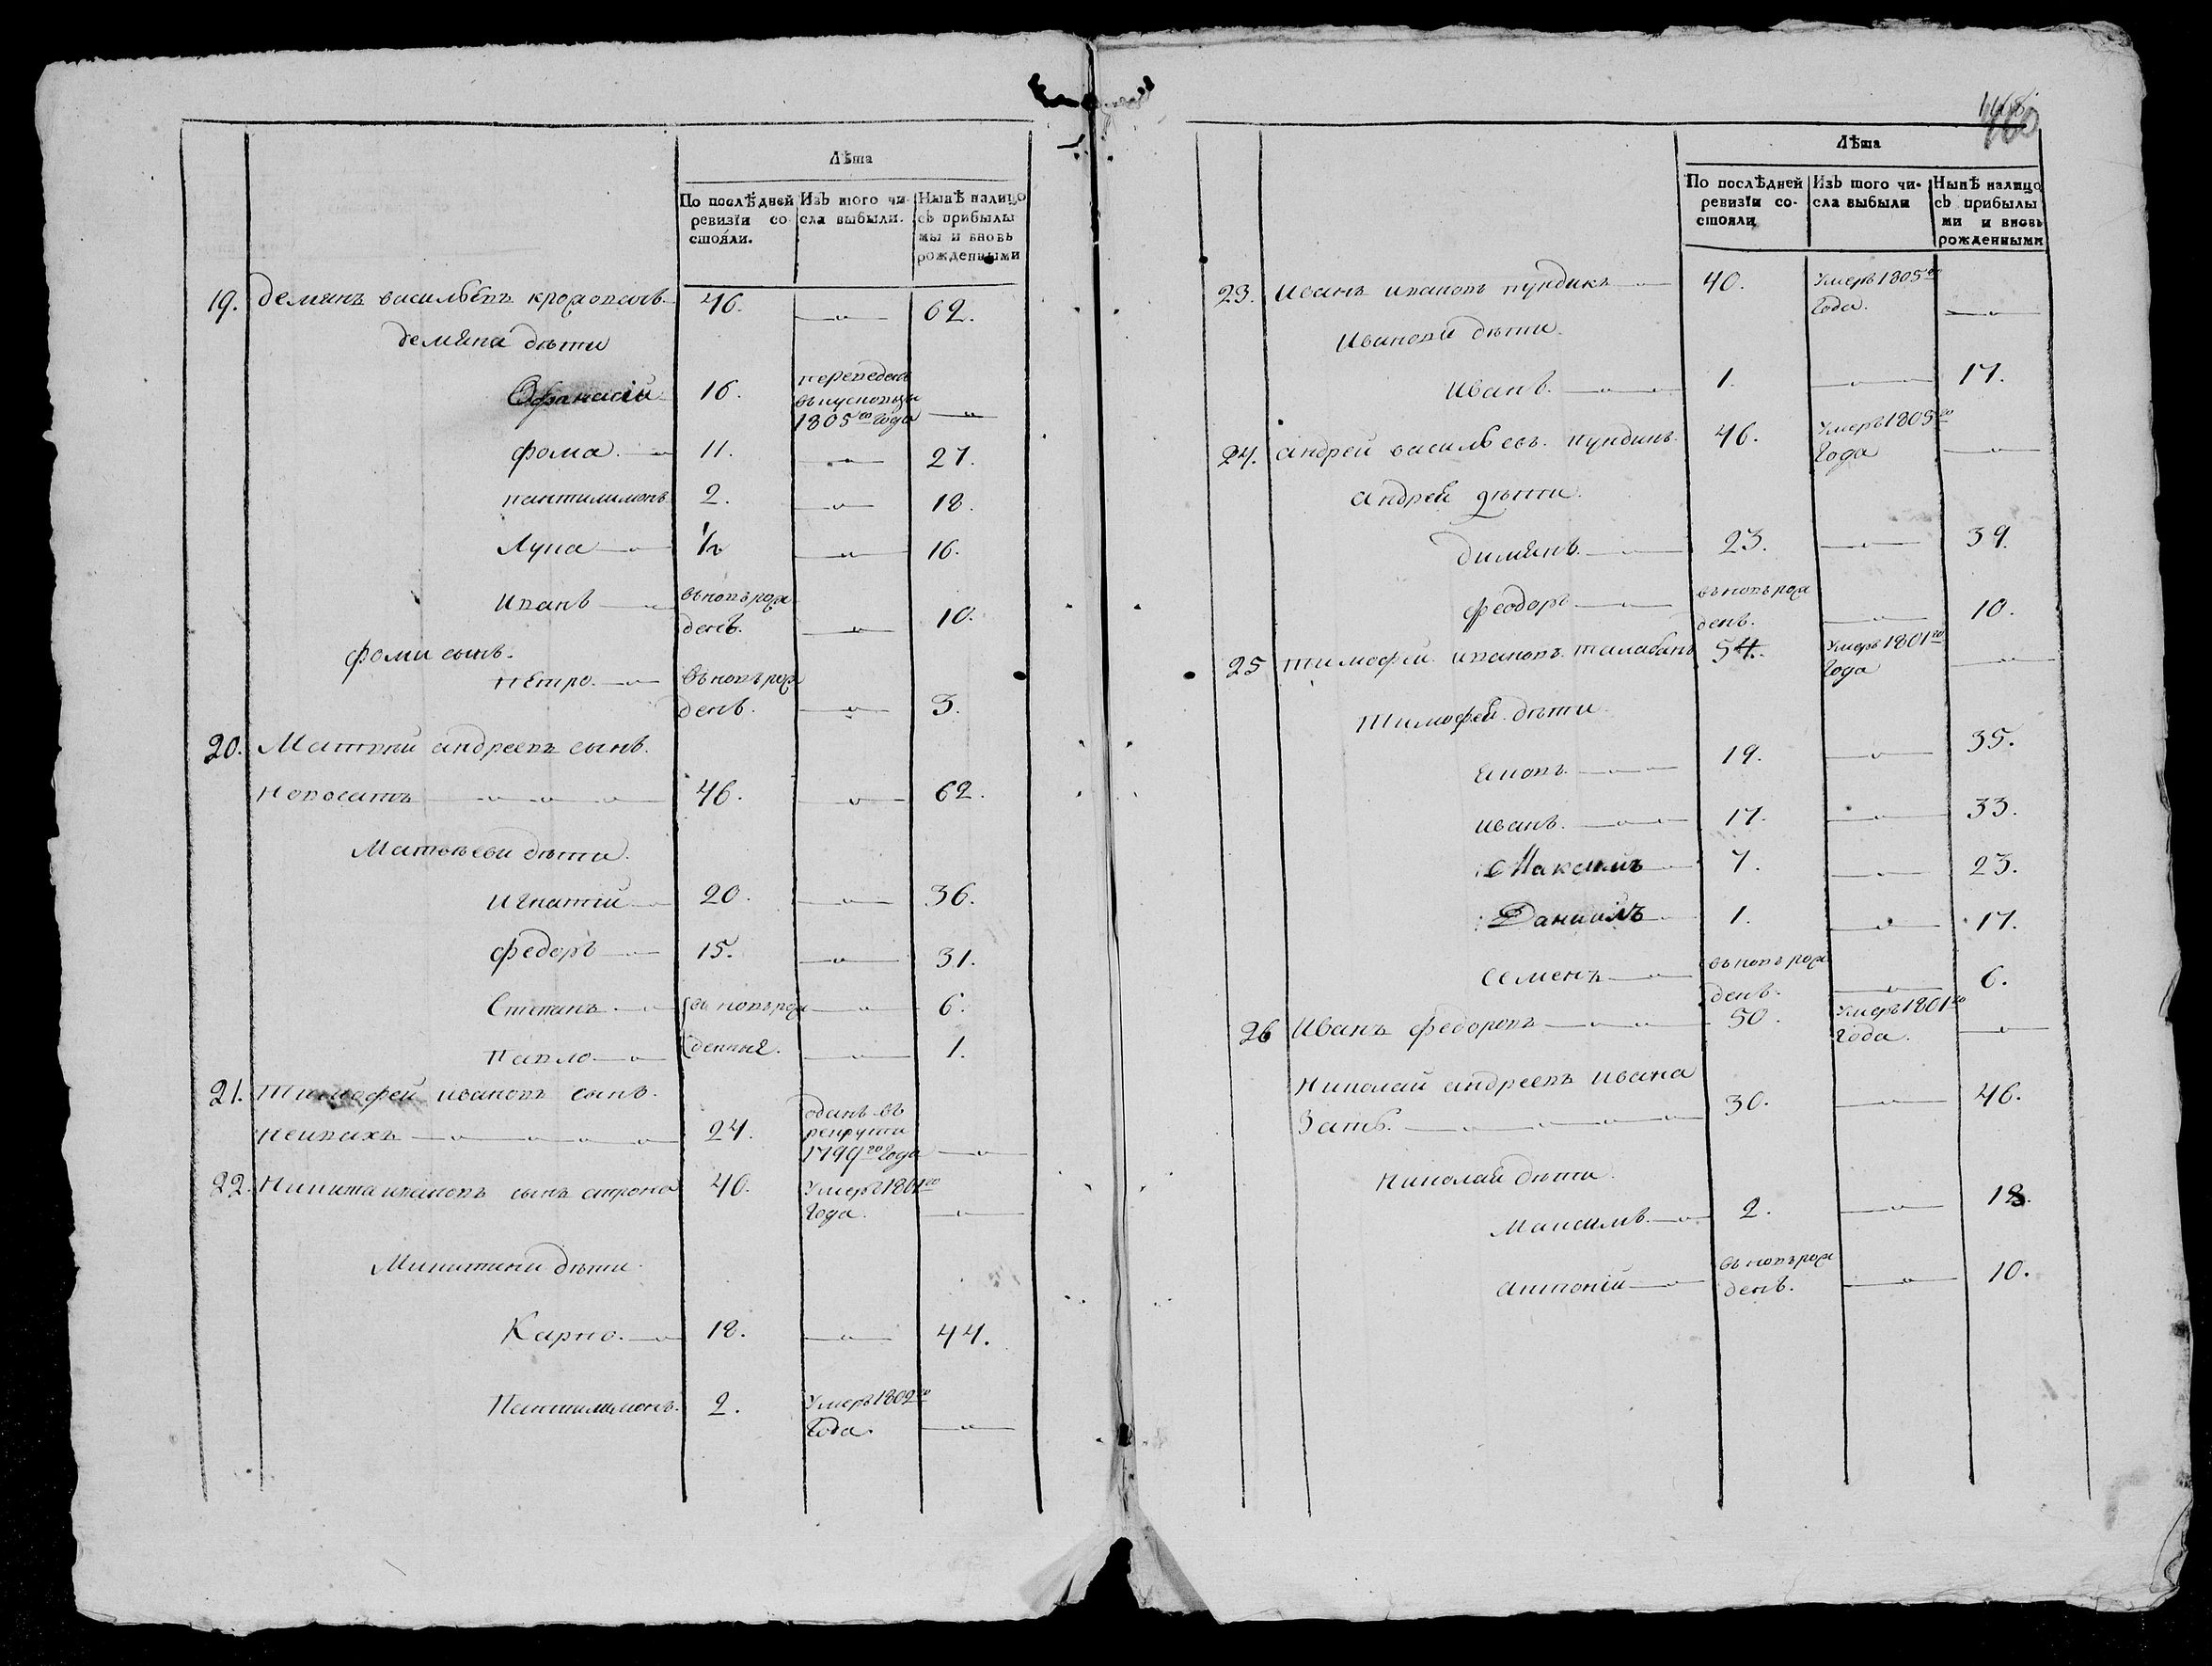 Лѣта
По послѣдней ревизїи состояли.
Изъ того числа выбыли.
Нынѣ налицо съ прибылы мы и вновь рожденными
19. демянъ васильевъ 46. — 62.
демяна дѣти
Афанасiй 16. переведенъ
въ
1805го года —
фома. — 11. — 27.
пантилимонъ 2. — 18.
Лука — ½ — 16.
иванъ — въновърож
денъ. — 10.
фоми сынъ.
петро. — въновърож
денъ. — 3.
20. Матвий андреевъ сынъ.
новосатъ — 46. — 62.
Матвѣеви дѣти.
игнатий — 20. — 36.
федоръ — 15. — 31.
Степанъ. — въ новърож — 6.
павло — денние. — 1.
21. тимофей ивановъ сынъ.
— 24. оданъ въ
рекрути
1799го года —
22. Никита ивановъ сынъ 40. Умеръ 1801го
года. —
Никитини дѣти.
Карпо. — 18. — 44.
Пантилимонъ. 2. Умеръ 1802го
года. —
460
Лѣта
По послѣдней ревизїи состояли
Изъ того числа выбыли
Нынѣ налицо съ прибылы ми и вновь рожденными
23. иванъ ивановъ пундикъ — 40. Умеръ 1805го
года. —
Иванови дѣти.
иванъ. — 1. — 17.
24. андрей васильевъ. пундикъ. 46. Умеръ 1805го
года —
андрей дѣти.
димянъ. — 23. — 39.
феодоръ — въновърож
денъ. — 10.
25 тимофей ивановъ талабанъ 54. Умеръ 1801го
года —
Тимофей дѣти.
— 19. — 35.
иванъ. — 17. — 33.
Максимъ — 7. — 23.
Даниилъ — 1. — 17.
семенъ — въновърож
денъ. — 6.
26 Иванъ федоровъ — 50. Умеръ 1801го
года. —
николай андреевъ ивана
Зять. — 30. — 46.
николай дѣти.
максимъ. — 2. — 18.
антоній — въновърож
денъ. — 10.